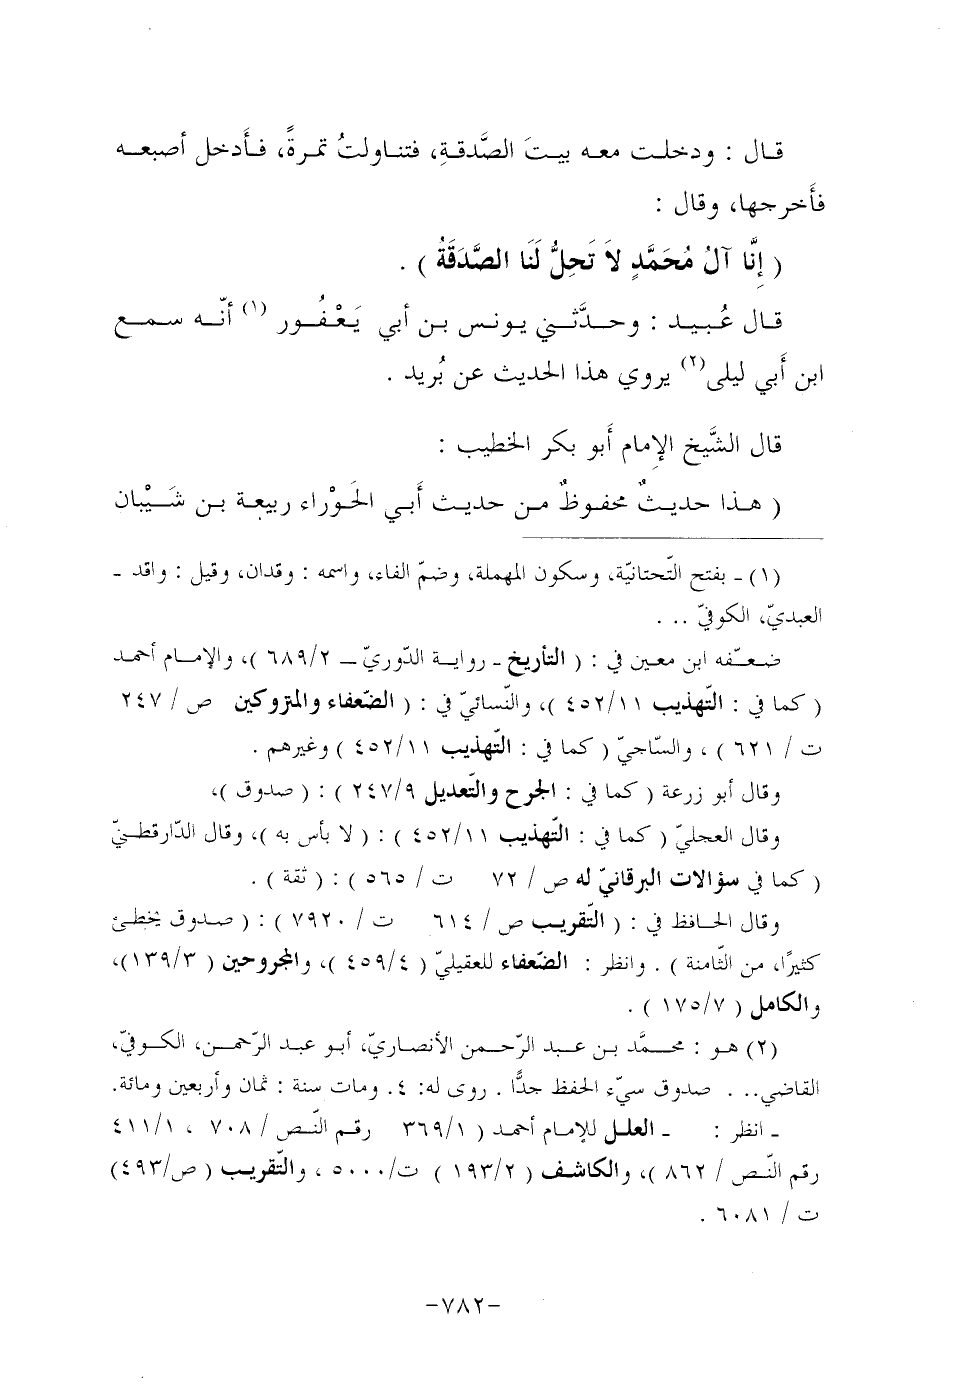 قال : ودخلت معه بيتَ الصَّدقةِ، فتناولتُ تمرةً، فأَدخل أصبعه
فأَخرجها، وقال :
( إِنَّا آلُ مُحَمَّدٍ لاَ تَحِلُّ لَنَا الصَّدَقَةُ ) .
قال عُبيد : وحدَّثني يونس بن أبي يَعْفُور (١) أنّه سمع
ابن أَبي ليلى(٢) يروي هذا الحديث عن بُريد .
قال الشَّيخ الإِمام أَبو بكر الخطيب :
( هذا حديثٌ محفوظٌ من حديث أَبي الحَوْراء ربيعة بن شَيْبان
(١) - بفتح التّحتانيّة، وسكون المهملة، وضمّ الفاء، واسمه : وقدان، وقيل : واقد -
العبديّ، الكوفيّ ... .
ضعّفه ابن معين في : ( التأريخ - رواية الدّوريّ - ٦٨٩/٢ )، والإمام أحمد
( كما في : التّهذيب ٤٥٢/١١ )، والنّسائيّ في : ( الضّعفاء والمتروكين ص / ٢٤٧
ت / ٦٢١ ) ، والسّاجيّ ( كما في : التّهذيب ٤٥٢/١١ ) وغيرهم .
وقال أبو زرعة ( كما في : الجرح والتّعديل ٢٤٧/٩ ) : ( صدوق )،
وقال العجليّ ( كما في : التّهذيب ٤٥٢/١١ ) : ( لا بأس به )، وقال الدّارقطنيّ
( كما في سؤالات البرقانيّ له ص / ٧٢ ت / ٥٦٥ ) : ( ثقة ) .
وقال الحافظ في : ( التّقريب ص / ٦١٤ ت / ٧٩٢٠ ) : ( صدوق يخطئ
كثيرًا، من الثّامنة ) . وانظر : الضّعفاء للعقيليّ ( ٤٥٩/٤ )، والمجروحين ( ١٣٩/٣)،
والكامل ( ١٧٥/٧ ) .
(٢) هو : محمّد بن عبد الرّحمن الأنصاريّ، أبو عبد الرّحمن، الكوفيّ،
القاضي... . صدوق سيّء الحفظ جدًّا . روى له: ٤. ومات سنة : ثمان وأربعين ومائة.
- انظر : - العلل للإمام أحمد ( ٣٦٩/١ رقم النّص / ٧٠٨ ، ٤١١/١
رقم النّص / ٨٦٢ )، والكاشف ( ١٩٣/٢ ) ت/٥٠٠٠ ، والتّقريب ( ص/٤٩٣)
ت / ٦٠٨١ .
-٧٨٢-